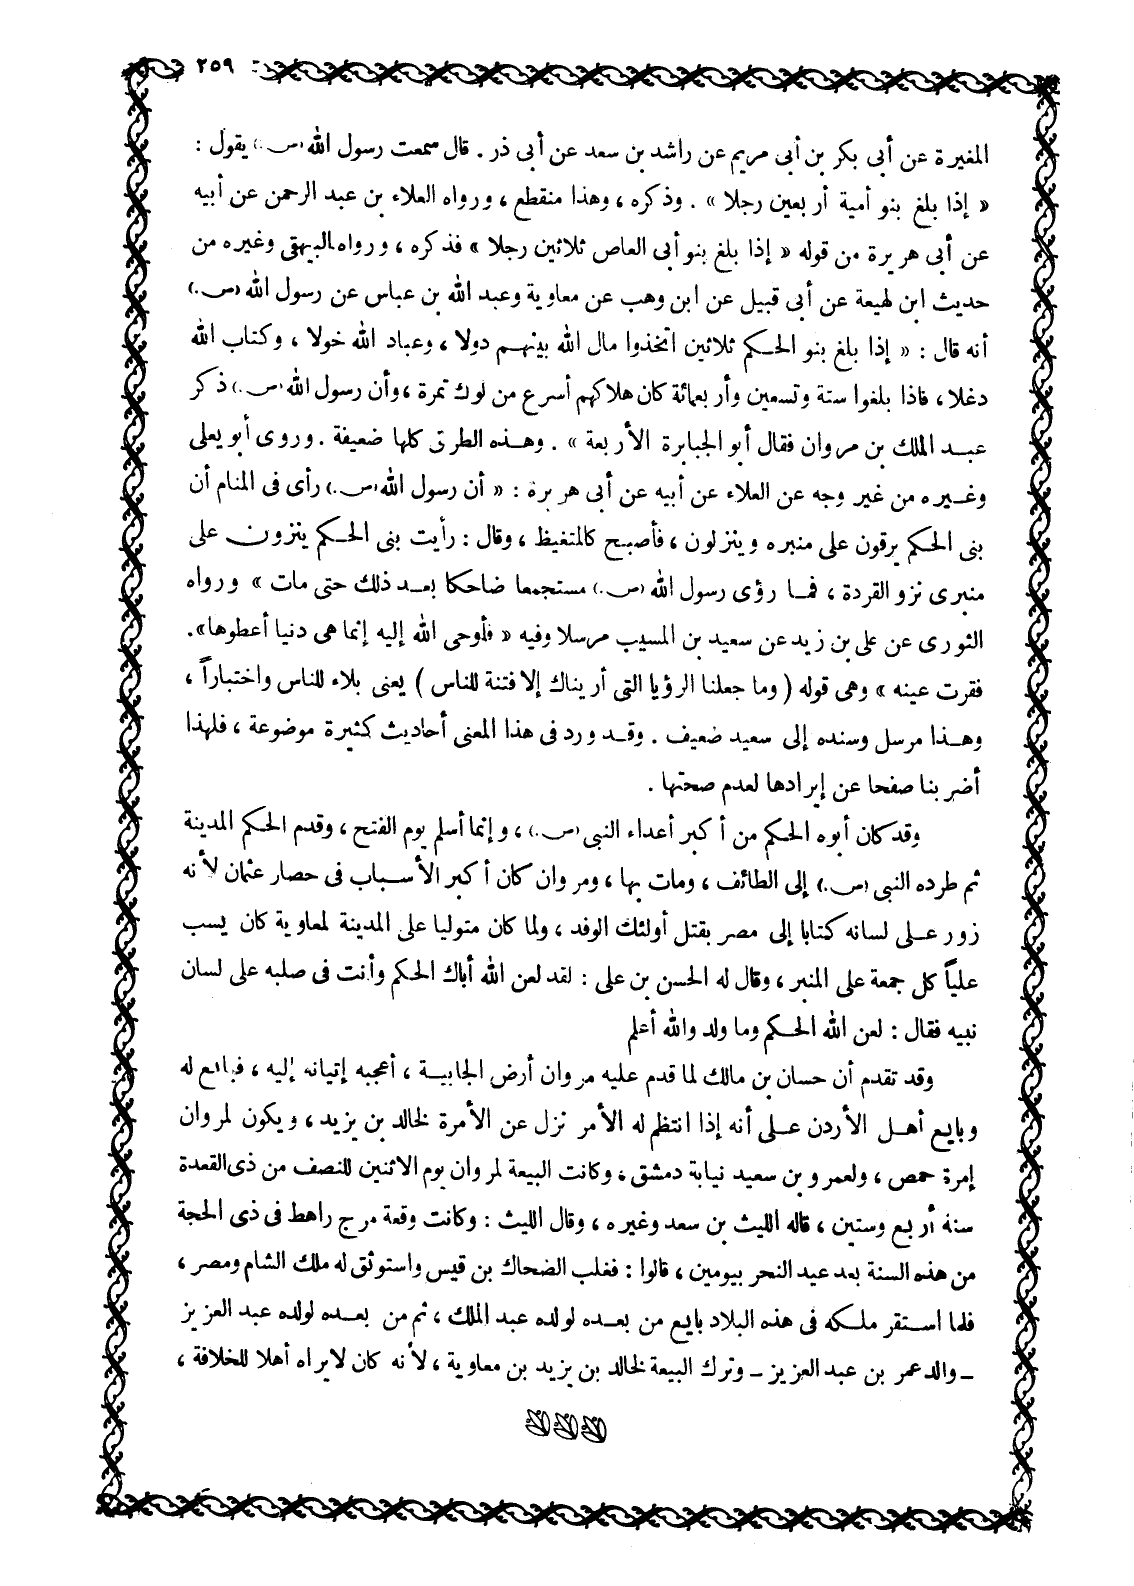 ٢٥٩
المغيرة عن أبى بكر بن أبى مريم عن راشد بن سعد عن أبى ذر . قال سمعت رسول الله (ص.) يقول :
« إذا بلغ بنو أمية أربعين رجلا » . وذكره ، وهذا منقطع ، ورواه العلاء بن عبد الرحمن عن أبيه
عن أبى هريرة من قوله « إذا بلغ بنو أبى العاص ثلاثين رجلا » فذكره ، ورواه البيهقى وغيره من
حديث ابن لهيعة عن أبى قبيل عن ابن وهب عن معاوية وعبد الله بن عباس عن رسول الله (ص.)
أنه قال : « إذا بلغ بنو الحكم ثلاثين اتخذوا مال الله بينهم دولا ، وعباد الله خولا ، وكتاب الله
دغلا ، فاذا بلغوا ستة وتسعين وأربعمائة كان هلاكهم أسرع من لوك تمرة ، وأن رسول الله (ص.) ذكر
عبد الملك بن مروان فقال أبو الجبابرة الأربعة » . وهذه الطرق كلها ضعيفة . وروى أبو يعلى
وغيره من غير وجه عن العلاء عن أبيه عن أبى هريرة : « أن رسول الله (ص.) رأى فى المنام أن
بنى الحكم يرقون على منبره وينزلون ، فأصبح كالمتغيظ ، وقال : رأيت بنى الحكم ينزون على
منبرى نزو القردة ، فما رؤى رسول الله (ص.) مستجمعا ضاحكا بعد ذلك حتى مات » ورواه
الثورى عن على بن زيد عن سعيد بن المسيب مرسلا وفيه « فأوحى الله إليه إنما هى دنيا أعطوها».
فقرت عينه » وهى قوله ( وما جعلنا الرؤيا التى أريناك إلا فتنة للناس ) يعنى بلاء للناس واختباراً ،
وهذا مرسل وسنده إلى سعيد ضعيف . وقد ورد فى هذا المعنى أحاديث كثيرة موضوعة ، فلهذا
أضربنا صفحا عن إيرادها لعدم صحتها .
وقد كان أبوه الحكم من أكبر أعداء النبى (ص.) ، وإنما أسلم يوم الفتح ، وقدم الحكم المدينة
ثم طرده النبى (ص.) إلى الطائف ، ومات بها ، ومروان كان أكبر الأسباب فى حصار عثمان لأنه
زور على لسانه كتابا إلى مصر بقتل أولئك الوفد ، ولما كان متوليا على المدينة لمعاوية كان يسب
علياً كل جمعة على المنبر ، وقال له الحسن بن على : لقد لعن الله أباك الحكم وأنت فى صلبه على لسان
نبيه فقال : لعن الله الحكم وما ولد والله أعلم
وقد تقدم أن حسان بن مالك لما قدم عليه مروان أرض الجابية ، أعجبه إتيانه إليه ، فبايع له
وبايع أهل الأردن على أنه إذا انتظم له الأمر نزل عن الأمرة لخالد بن يزيد ، ويكون لمروان
إمرة حمص ، ولعمرو بن سعيد نيابة دمشق ، وكانت البيعة لمروان يوم الاثنين للنصف من ذى القعدة
سنة أربع وستين ، قاله الليث بن سعد وغيره ، وقال الليث : وكانت وقعة مرج راهط فى ذى الحجة
من هذه السنة بعد عيد النحر بيومين ، قالوا : فغلب الضحاك بن قيس واستوثق له ملك الشام ومصر ،
فلما استقر ملكه فى هذه البلاد بايع من بعده لولده عبد الملك ، ثم من بعده لولده عبد العزيز
ـ والد عمر بن عبد العزيز ـ وترك البيعة لخالد بن يزيد بن معاوية ، لأنه كان لايراه أهلا للخلافة ،